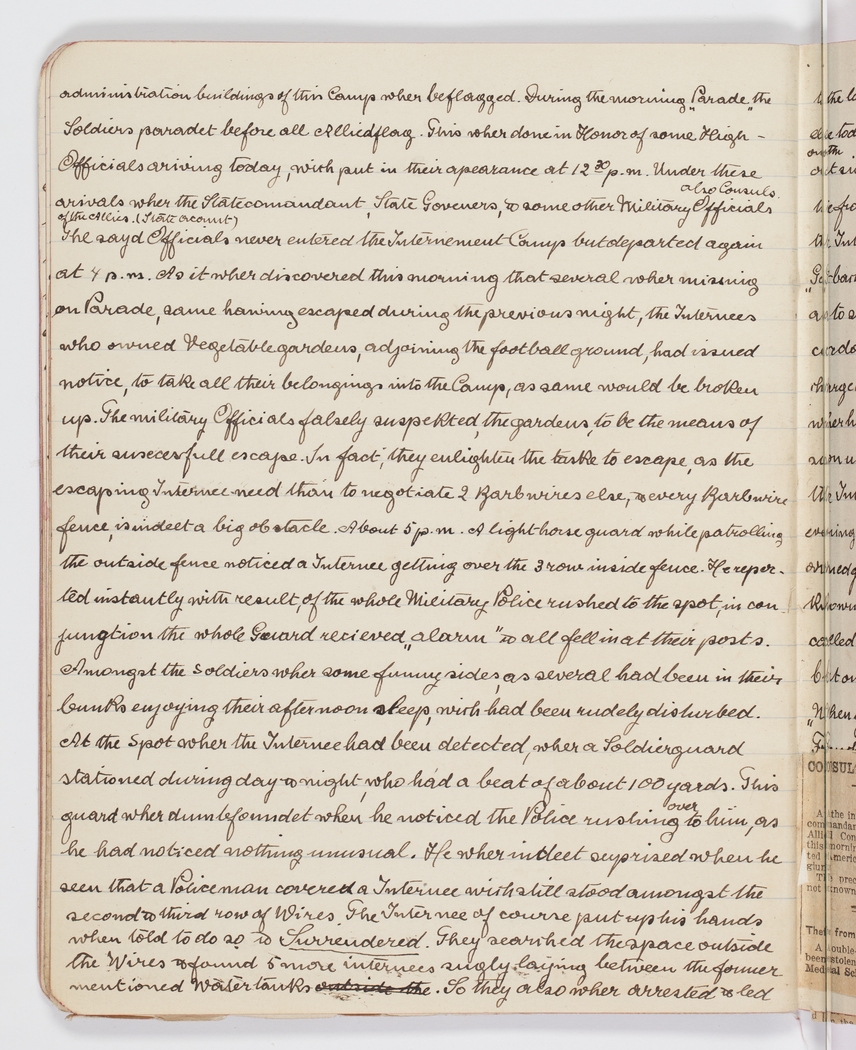 administration buildings of this Camp wher beflagged. During the morning „Parade" the
Soldiers paradet before all Alliedflag. This wher done in Honor of some High -
Officials ariving today, wich put in their apearance at 12 30 p.m. Under these
also Consuls
arivals wher the Statecomandant, State Goveners, & some other Military Officials
of the Allies. (State acount)
The sayd Officials never entered the Internement Camp but departed again
at 4 p.m. As it wher discovered this morning that several wher missing
on Parade, same hawing escaped during the previous night, the Internees
who owned Vegetablegardens, adjoining the football ground, had issued
notice, to take all their belongings into the Camp, as same would be broken
up. The military Officials falsely suspekted, the gardens, to be the means of
their suscessfull escape. In fact, they enlighten the taske to escape, as the
escaping Internee need than to negotiate 2 Barbwires else, & every Barbwire
fence, is indeet a big obstacle. About 5 p.m. A light horse guard while patrolling
the outside fence noticed a Internee getting over the 3 row inside fence. He repor-
ted instantly with result, of the whole Military Police rushed to the spot, in con
jungtion the whole Guard recieved „alarm" & all fell in at their posts.
Amongst the Soldiers wher some funny sides, as several had been in their
bunks enjoying their afternoon sleep, wich had been rudely disturbed.
At the Spot wher the Internee had been detected, wher a Soldierguard
stationed during day & night, who had a beat of about 100 yards. This
over
guard wher dumbfoundet when he noticed the Police rushing to him, as
he had noticed nothing unusual. He wher indeet suprised when he
seen that a Policeman covered a Internee wich still stood amongst the
second & third row of Wires. The Internee of course put up his hands
when told to do so & Surrendered. They searched the space outside
the Wires & found 5 more internees sugly laying between the former
mentioned Watertanks outside the. So they also wher arrested & led